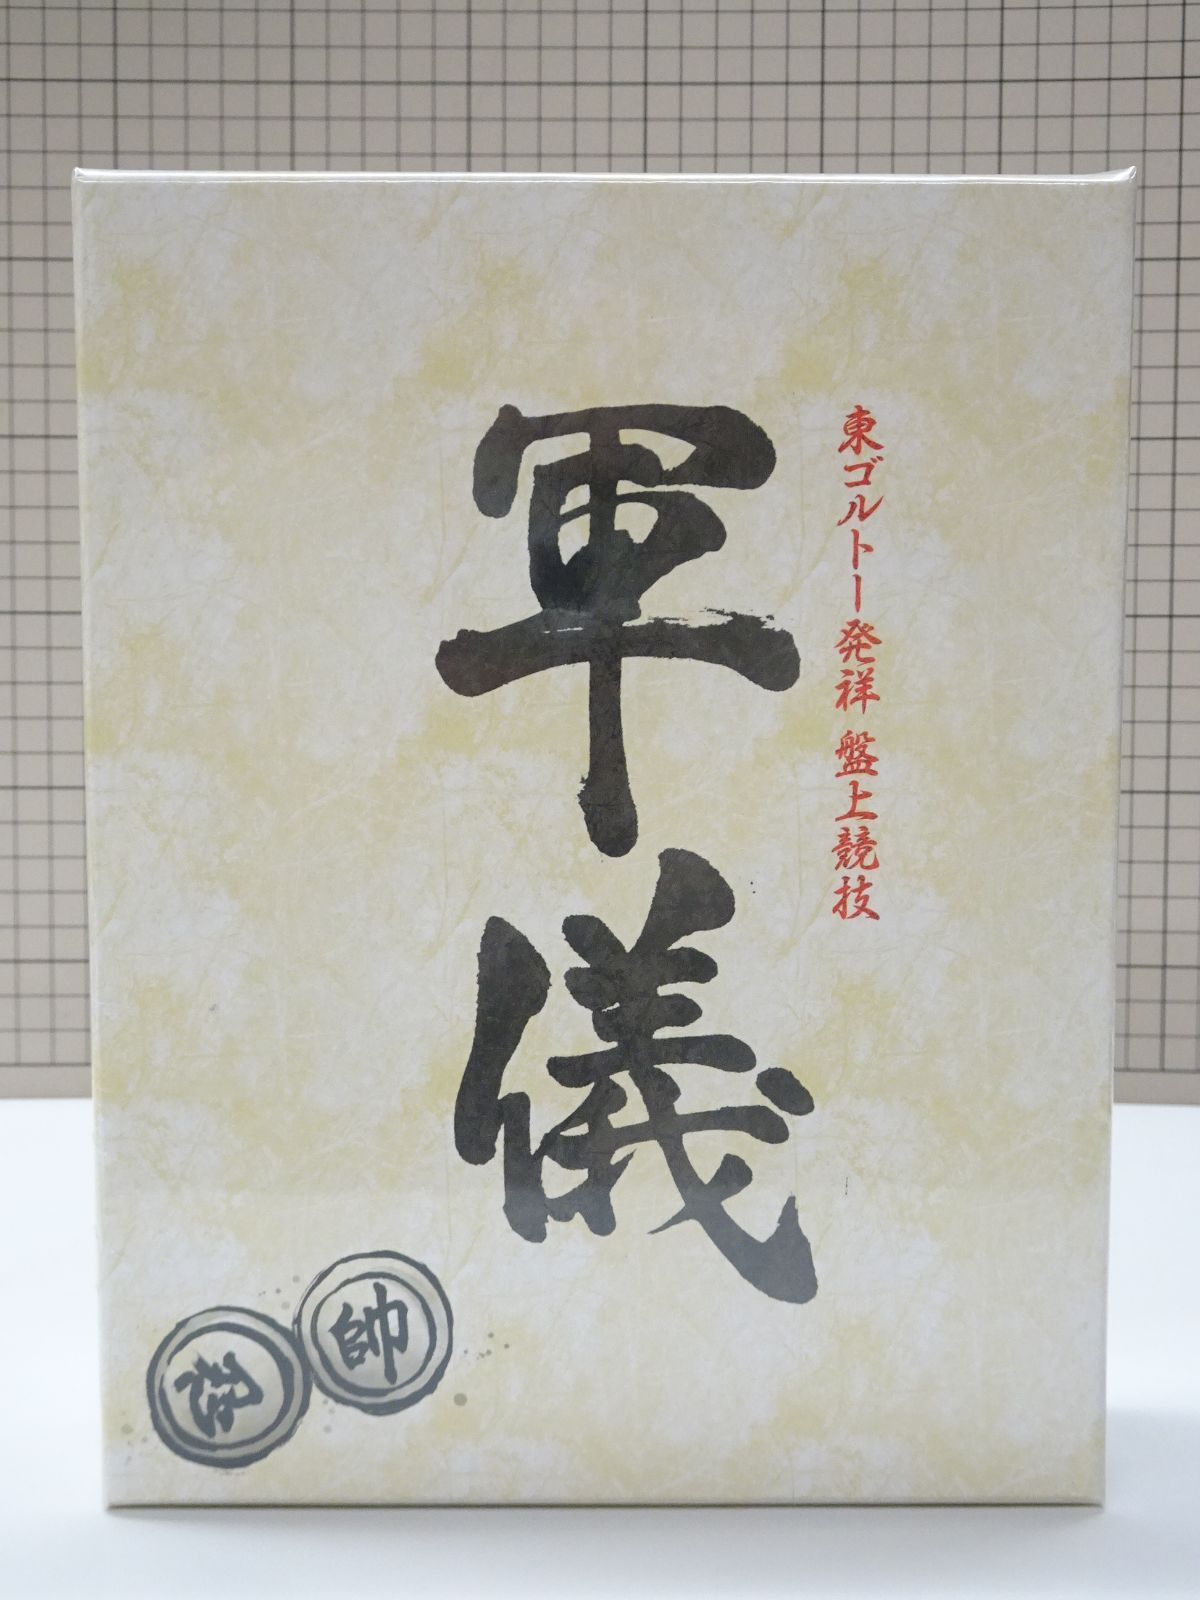 東ゴルトー発祥 盤上競技
軍儀
帥
忍